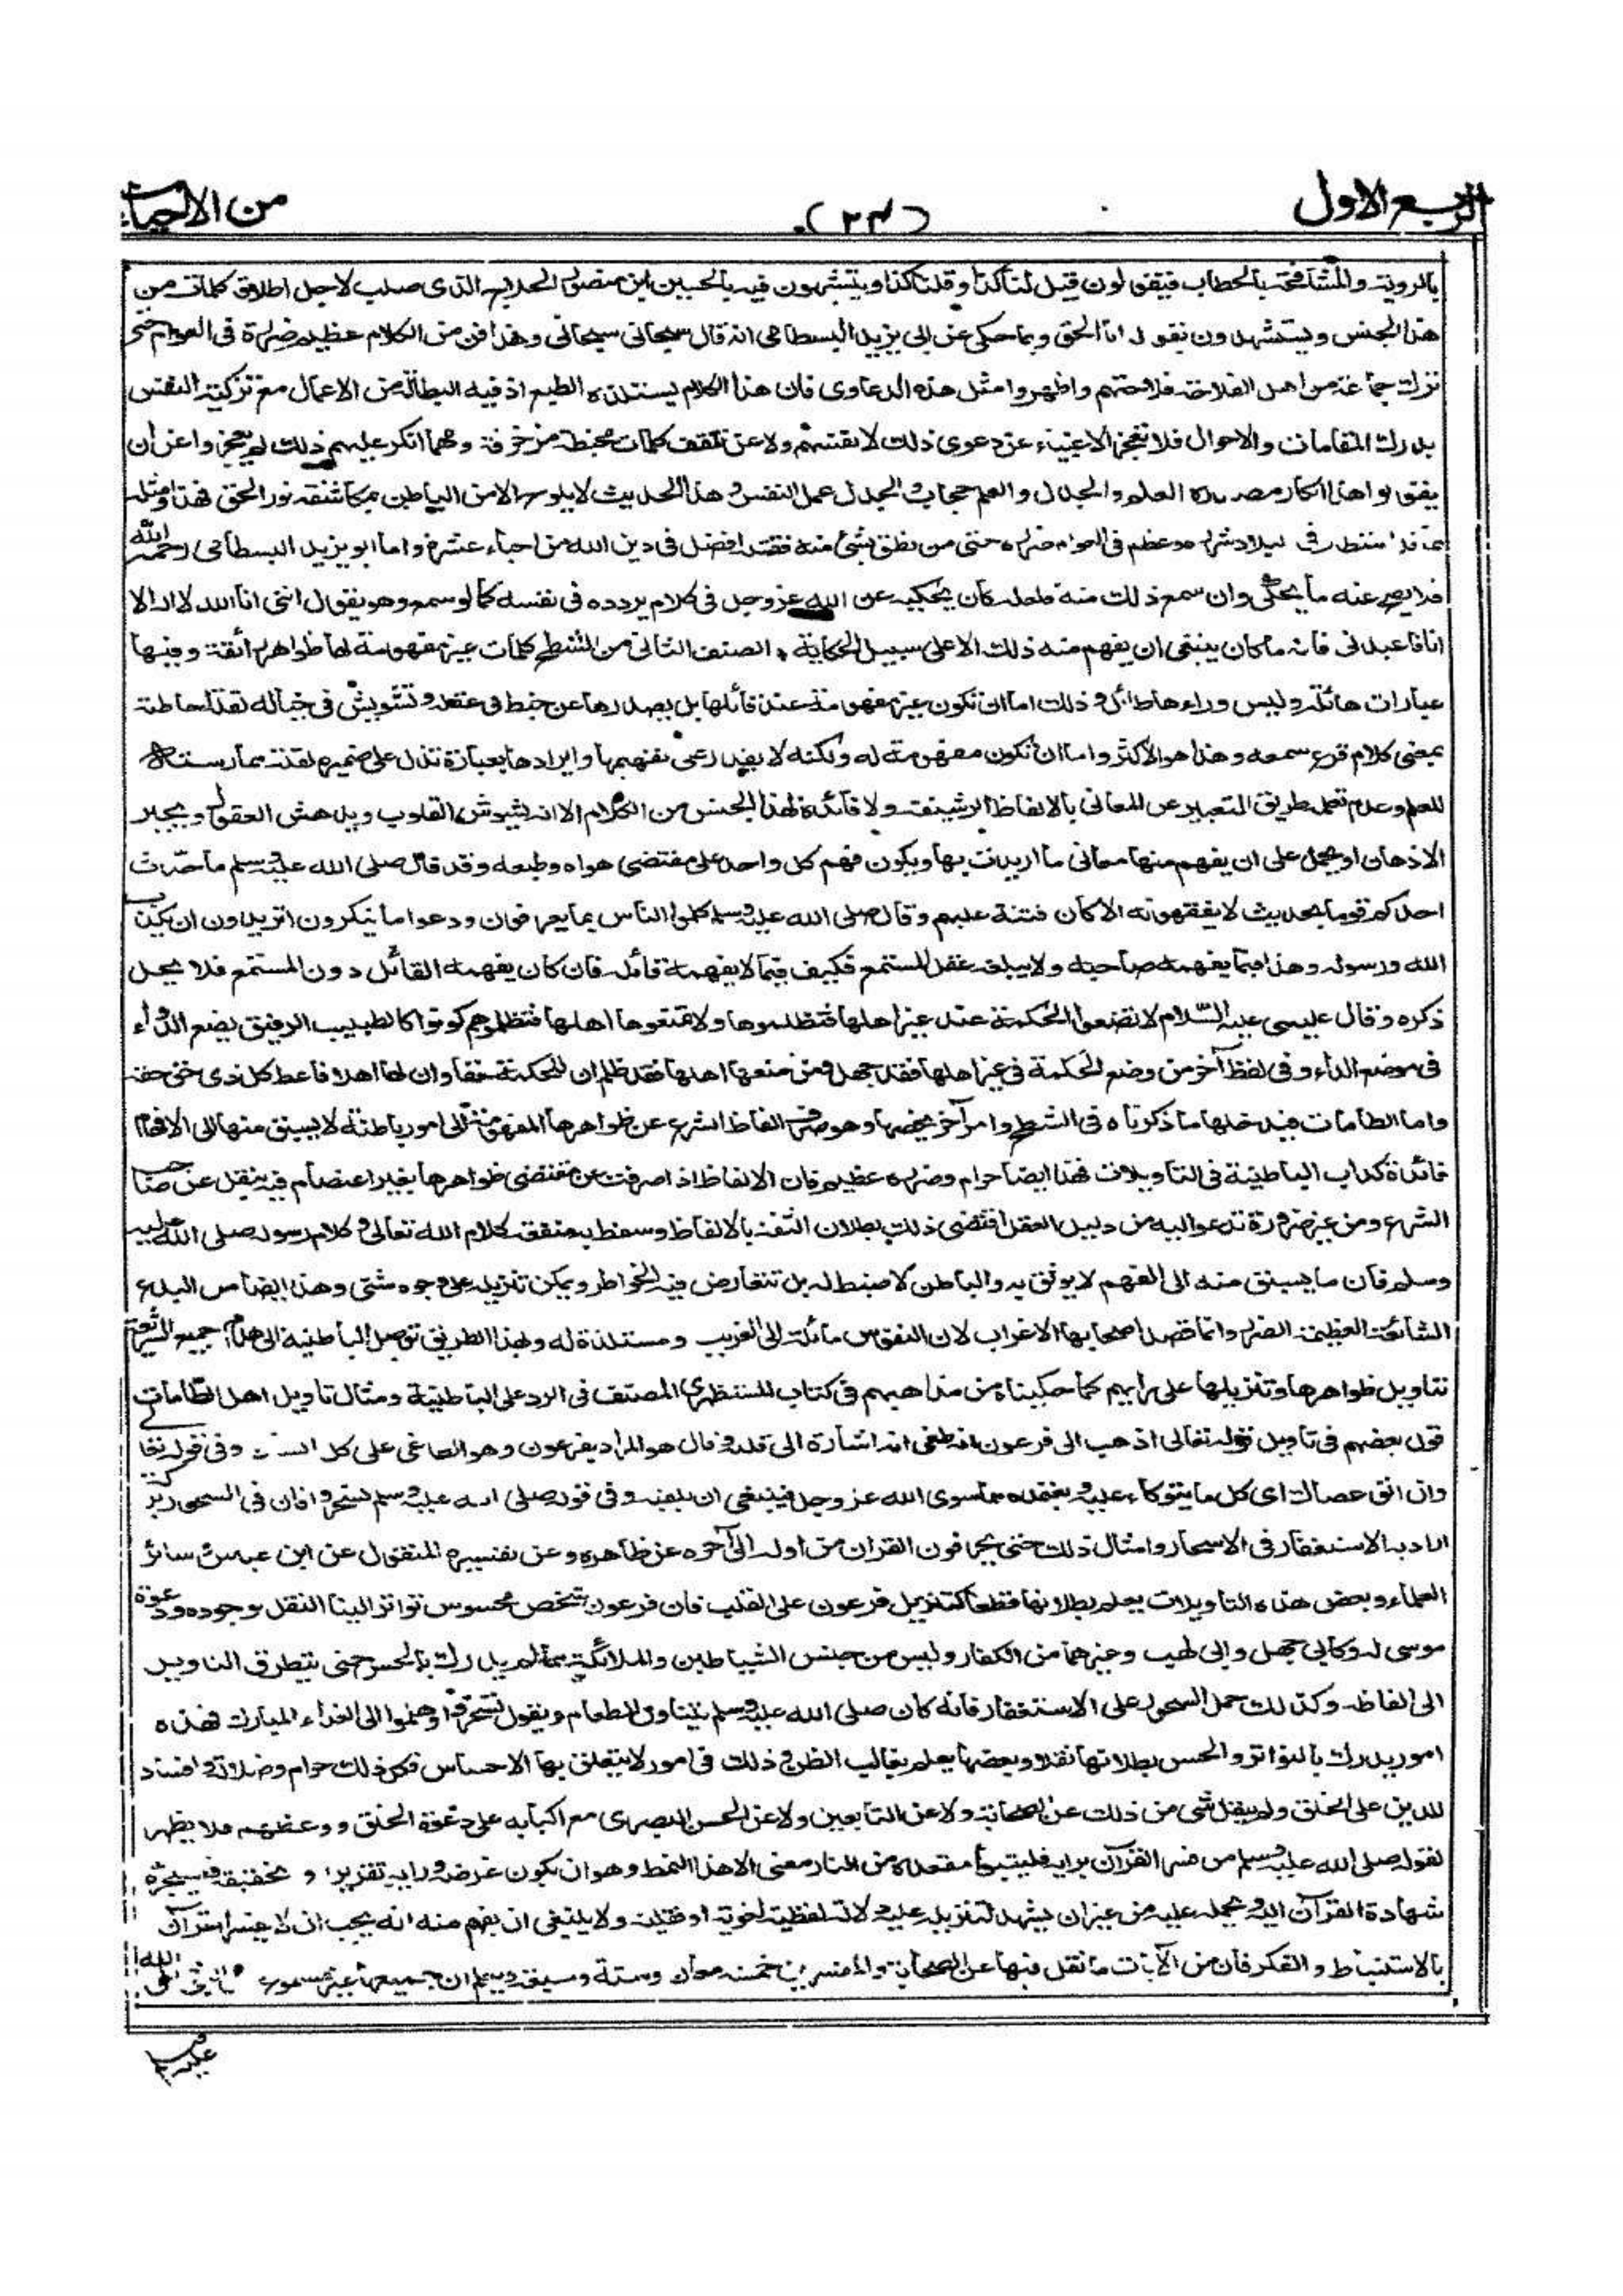 الربع الاول
(٢٣)
من الاحياء
بالروية والمشافهة بالخطاب فيقولون قيل لنا كذا وقلنا كذا ويتشبهون فيه بالحسين بن منصور الحلاج الذى صلب لاجل اطلاق كلمات من
هذا الجنس ويستشهدون بقوله انا الحق وبما حكى عن ابى يزيد البسطامى انه قال سبحانى سبحانى وهذا فن من الكلام عظيم ضرره فى العوام حتى
ترك جماعة من اهل الفلاحة فلاحتهم واظهروا مثل هذه الدعاوى فان هذا الكلام يستلذه الطبع اذ فيه البطالة من الاعمال مع تزكية النفس
بدرك المقامات والاحوال فلا تعجز الاغبياء عن دعوى ذلك لانفسهم ولا عن تلقف كلمات مخبطة مزخرفة ومهما انكر عليهم ذلك لم يعجزوا عن ان
يقولوا هذا انكار مصدره العلم والجدال والعلم حجاب والجدل عمل النفس وهذا الحديث لا يلوح الا من الباطن بمكاشفة نور الحق فهذا ومثله
مما قد استطار فى البلاد شرره وعظم فى العوام ضرره حتى من نطق بشئ منه فقتله افضل فى دين الله من احياء عشرة واما ابو يزيد البسطامى رحمه الله
فلا يصح عنه ما يحكى وان سمع ذلك منه فلعله كان يحكيه عن الله عز وجل فى كلام يردده فى نفسه كما لو سمع وهو يقول اننى انا الله لا اله الا
انا فاعبدنى فانه ما كان ينبغى ان يفهم منه ذلك الا على سبيل الحكاية الصنف الثانى من الشطح كلمات غير مفهومة لها ظواهر رائقة وفيها
عبارات هائلة وليس وراءها طائل وذلك اما ان تكون غير مفهومة عند قائلها بل يصدرها عن خبط فى عقله وتشويش فى خياله لقلة احاطته
بمعنى كلام قرع سمعه وهذا هو الاكثر واما ان تكون مفهومة له ولكنه لا يقدر على تفهيمها وايرادها بعبارة تدل على ضميره لقلة ممارسته
للعلم وعدم تعلمه طريق التعبير عن المعانى بالالفاظ الرشيقة ولا فائدة لهذا الجنس من الكلام الا انه يشوش القلوب ويدهش العقول ويحير
الاذهان او يحمل على ان يفهم منها معانى ما اريدت بها ويكون فهم كل واحد على مقتضى هواه وطبعه وقد قال صلى الله عليه وسلم ما حدث
احدكم قوما بحديث لا يفقهونه الا كان فتنة عليهم وقال صلى الله عليه وسلم كلموا الناس بما يعرفون ودعوا ما ينكرون اتريدون ان يكذب
الله ورسوله وهذا فيما يفهمه صاحبه ولا يبلغه عقل المستمع فكيف فيما لا يفهمه قائله فان كان يفهمه القائل دون المستمع فلا يحل
ذكره وقال عيسى عليه السلام لا تضعوا الحكمة عند غير اهلها فتظلموها ولا تمنعوها اهلها فتظلموهم كونوا كالطبيب الرفيق يضع الدواء
فى موضع الداء وفى لفظ آخر من وضع الحكمة فى غير اهلها فقد جهل ومن منعها اهلها فقد ظلم ان للحكمة حقا وان لها اهلا فاعط كل ذى حق حقه
واما الطامات فيدخلها ما ذكرناه فى الشطح وامر آخر يخصها وهو صرف الفاظ الشرع عن ظواهرها المفهومة الى امور باطنة لا يسبق منها الى الافهام
فائدة كداب الباطنية فى التاويلات فهذا ايضا حرام وضرره عظيم فان الالفاظ اذا صرفت عن مقتضى ظواهرها بغير اعتصام فيه بنقل عن صاحب
الشرع ومن غير ضرورة تدعو اليه من دليل العقل اقتضى ذلك بطلان الثقة بالالفاظ وسقط به منفعة كلام الله تعالى وكلام رسوله صلى الله عليه
وسلم فان ما يسبق منه الى الفهم لا يوثق به والباطن لا ضبط له بل تتعارض فيه الخواطر ويمكن تنزيله على وجوه شتى وهذا ايضا من البدع
الشائعة العظيمة الضرر وانما قصد اصحابها الاغراب لان النفوس مائلة الى الغريب ومستلذة له وبهذا الطريق توصل الباطنية الى هدم جميع الشريعة
بتاويل ظواهرها وتنزيلها على رايهم كما حكيناه من مذاهبهم فى كتاب المستظهرى المصنف فى الرد على الباطنية ومثال تاويل اهل الطامات
قول بعضهم فى تاويل قوله تعالى اذهب الى فرعون انه طغى انه اشارة الى قلبه وقال هو المراد بفرعون وهو الطاغى على كل وفى قوله تعالى
وان الق عصاك اى كل ما يتوكاء عليه ويعتمده مما سوى الله عز وجل فينبغى ان يلقيه وفى قوله صلى الله عليه وسلم تسحروا فان فى السحور بركة
اراد به الاستغفار فى الاسحار وامثال ذلك حتى يحرفون القران من اوله الى آخره عن ظاهره وعن تفسيره المنقول عن ابن عباس وسائر
العلماء وبعض هذه التاويلات يعلم بطلانها قطعا كتنزيل فرعون على القلب فان فرعون شخص محسوس تواتر الينا النقل بوجوده ودعوة
موسى له وكابى جهل وابى لهب وغيرهما من الكفار وليس من جنس الشياطين والملائكة مما لم يدرك بالحس حتى يتطرق التاويل
الى الفاظه وكذلك حمل السحور على الاستغفار فانه كان صلى الله عليه وسلم يتناول الطعام ويقول تسحروا وهلموا الى الغذاء المبارك فهذه
امور يدرك بالتواتر والحس بطلانها نقلا وبعضها يعلم بغالب الظن وذلك فى امور لا يتعلق بها الاحساس فكل ذلك حرام وضلالة وافساد
للدين على الخلق ولم ينقل شئ من ذلك عن الصحابة ولا عن التابعين ولا عن الحسن البصرى مع اكبابه على دعوة الخلق ووعظهم فلا يظهر
لقوله صلى الله عليه وسلم من فسر القرآن برايه فليتبوأ مقعده من النار معنى الا هذا النمط وهو ان يكون غرضه ورايه تقرير وتحقيقه فيستجر
شهادة القرآن اليه ويحمله عليه من غير ان يشهد لتنزيله عليه دلالة لفظية لغوية او نقلية ولا ينبغى ان يفهم منه انه يجب ان لا يفسر القرآن
بالاستنباط والفكر فان من الآيات ما نقل فيها عن الصحابة والمفسرين خمسة معان وستة وسبعة ويعلم ان جميعها غير مسموع